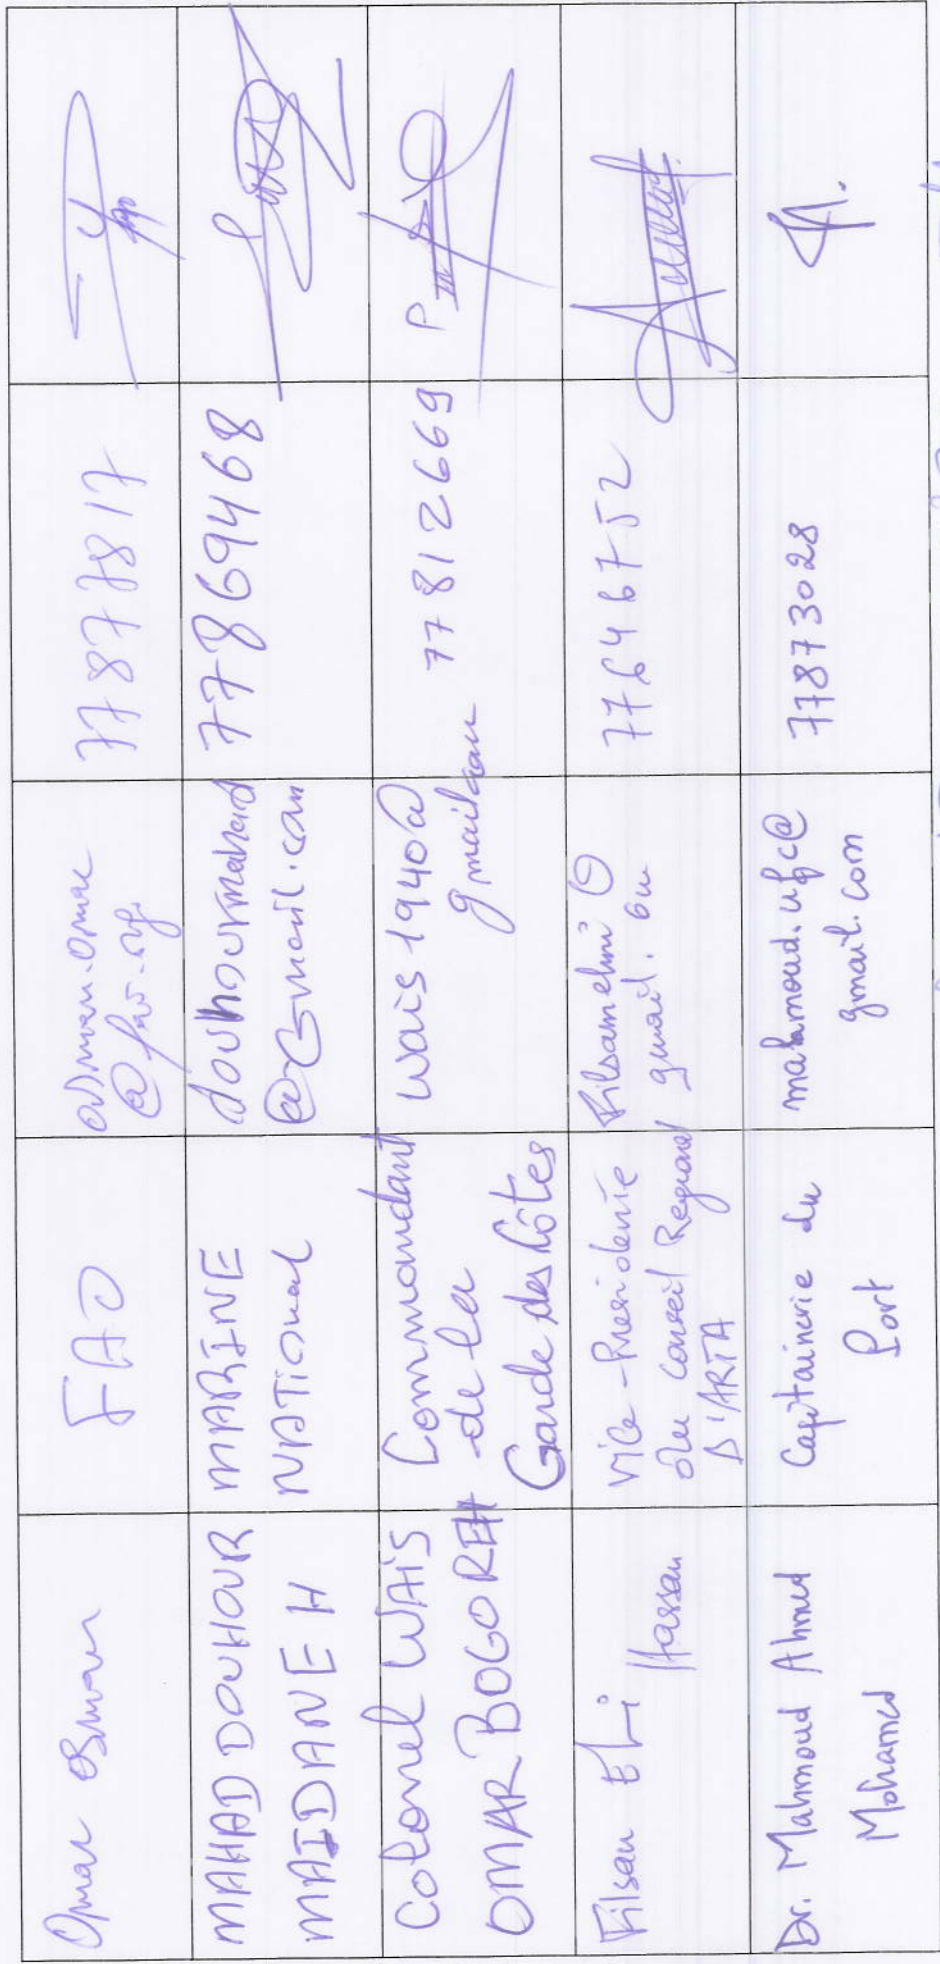 Omar Osman
FAO
osman.omar
@fao.org
77877817
MAHAD DOUHOUR
MAIDANEH
MARINE
NATIONAL
douhourmahad
@Gmail.com
77869468
Colonel WAIS
OMAR BOGOREH
Commandant
de la
Garde des Côtes
wais1940@
gmail.com
77812669
Filsan Elmi
Hassan
Vice-Presidente
du Conseil Regional
D'ARTA
gmail.com
77646752
Dr. Mahmoud Ahmed
Mohamed
Capitainerie du
Port
mahamoud.ufc@
gmail.com
77873028